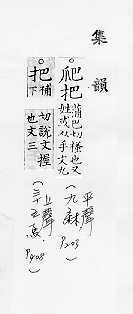 集韻
○爬把蒲巴切搔也又
姓或从手文九
平聲
(九麻 P208)
○把補下
切說文握
也文三
上聲
(三十五馬 P408)